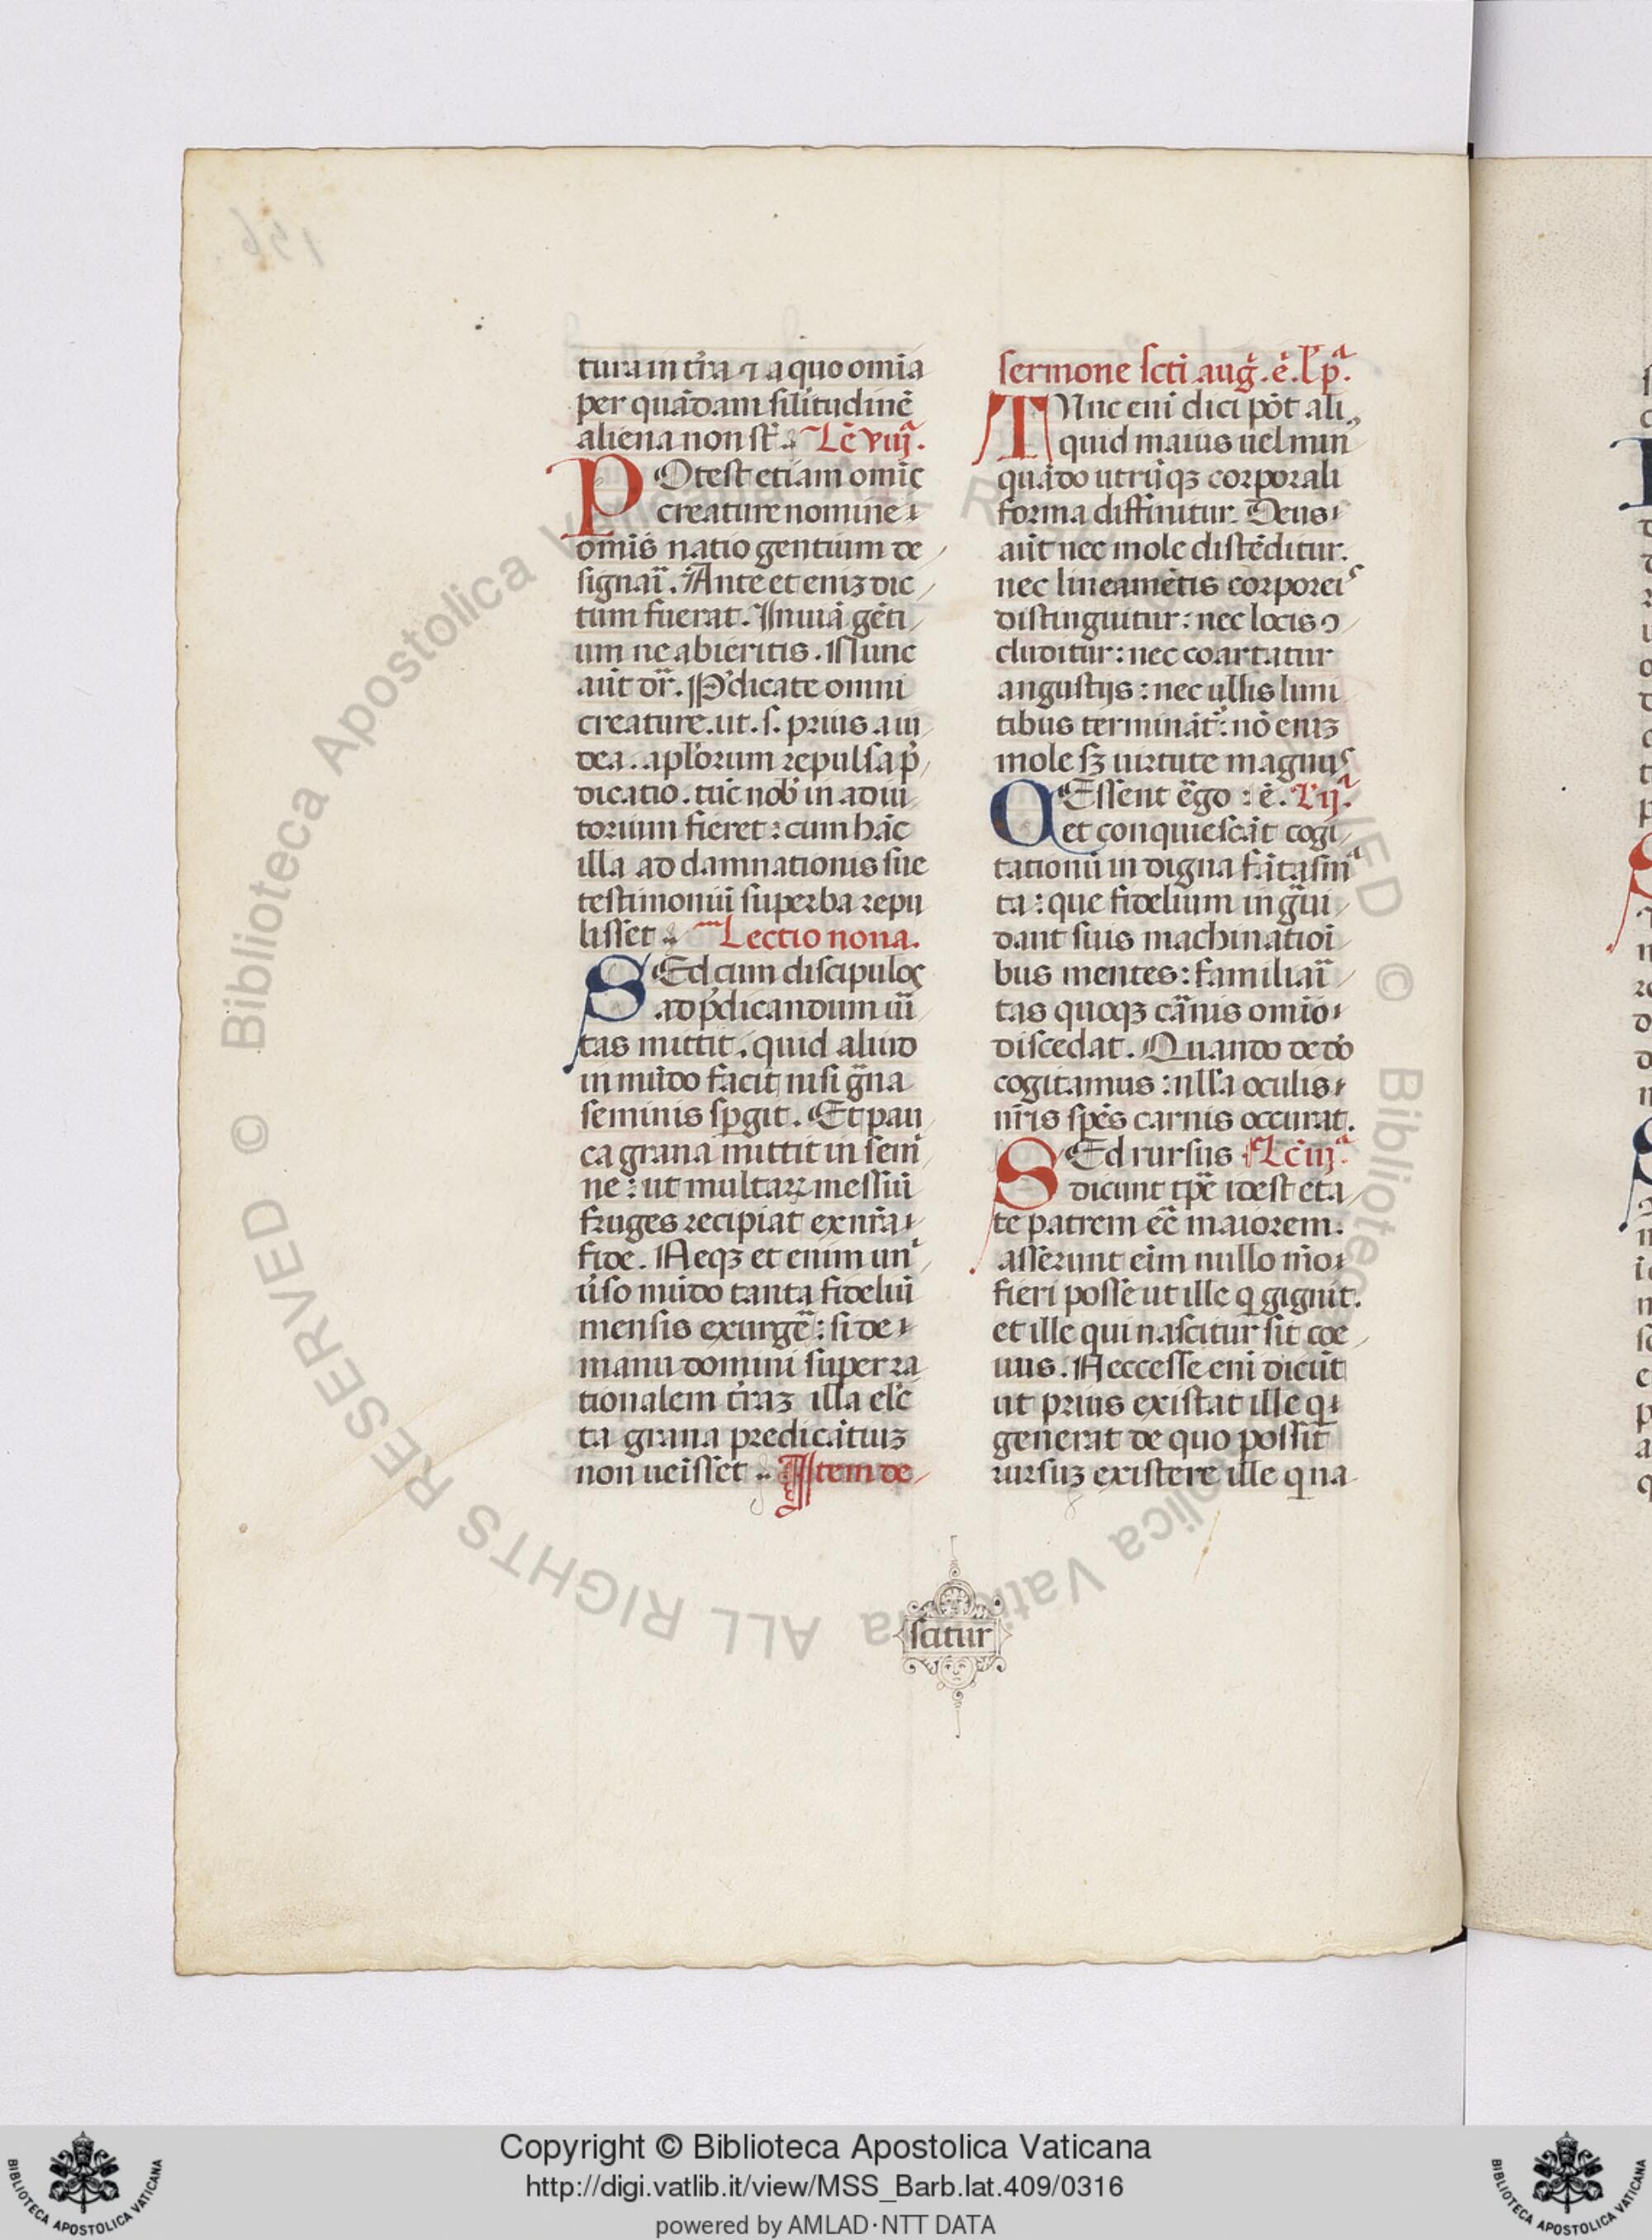 tura in t̃ra ⁊ a quo om̃ia
per quãdam sil̃itudinẽ
aliena non st̃. Lc̃ viijª.
POtest etiam om̃is
creature nomine
om̃is natio gentium de
signari. Ante et eniʒ dic
tum fuerat. In uiã gẽti
um ne abieritis. Nunc
aũt dr̃. P̃dicate omni
creature. ut. s. prius a iu
dea. apl̃orum repulsa p̃
dicatio. tũc nob̃ in adiu
torium fieret: cum hãc
illa ad damnationis sue
testimoniũ superba repu
lisset. Lectio nona.
SEd cum discipulos
ad p̃dicandum ũi
tas mittit. quid aliud
in mũdo facit nisi gñna
seminis sp̱git. Et pau
ca grana mittit in semi
ne: ut multaꝝ messiũ
fruges recipiat ex nr̃a
fide. Neqʒ et enim un
iũso mũdo tanta fideliũ
mensis exurgẽ: si de
manu domini super ra
tionalem t̃raʒ illa elc̃
ta grana predicãtiuʒ
non ueĩsset. Item de
sermone scti aug̃. ẽ. lp̃ª.
TUnc enĩ dici põt ali
quid maius uel min
quãdo utrũqʒ corporali
forma diffinitur. Deus
aũt nec mole distẽditur.
nec lineamẽtis corporeis
distinguitur: nec locis ↄ
cluditur: nec coartatur
angustijs: nec ullis limi
tibus terminãt: nõ eniʒ
mole sʒ uirtute magnus
QEssent ẽgo: ẽ. l'ijª.
et conquiescãt cogi
tationũ in digna fãtasma
ta: que fidelium in gñui
dant suis machinatiõi
bus mentes: familiari
tas quoqʒ cãnis om̃io
discedat. Quando de dõ
cogitamus: nlla oculis
nr̃is spẽs carnis occurat.
SEd rursus Lc̃ iijª.
dicunt tp̃e idest eta
te patrem eẽ maiorem.
asserunt eĩm nullo mõ
fieri posse ut ille q gignit.
et ille qui nascitur sit coe
uus. Neccesse enĩ dicũt
ut prius existat ille qi
generat de quo possit
rursuʒ existere ille q na
scitur
Copyright © Biblioteca Apostolica Vaticana
http://digi.vatlib.it/view/MSS_Barb.lat.409/0316
powered by AMLAD·NTT DATA